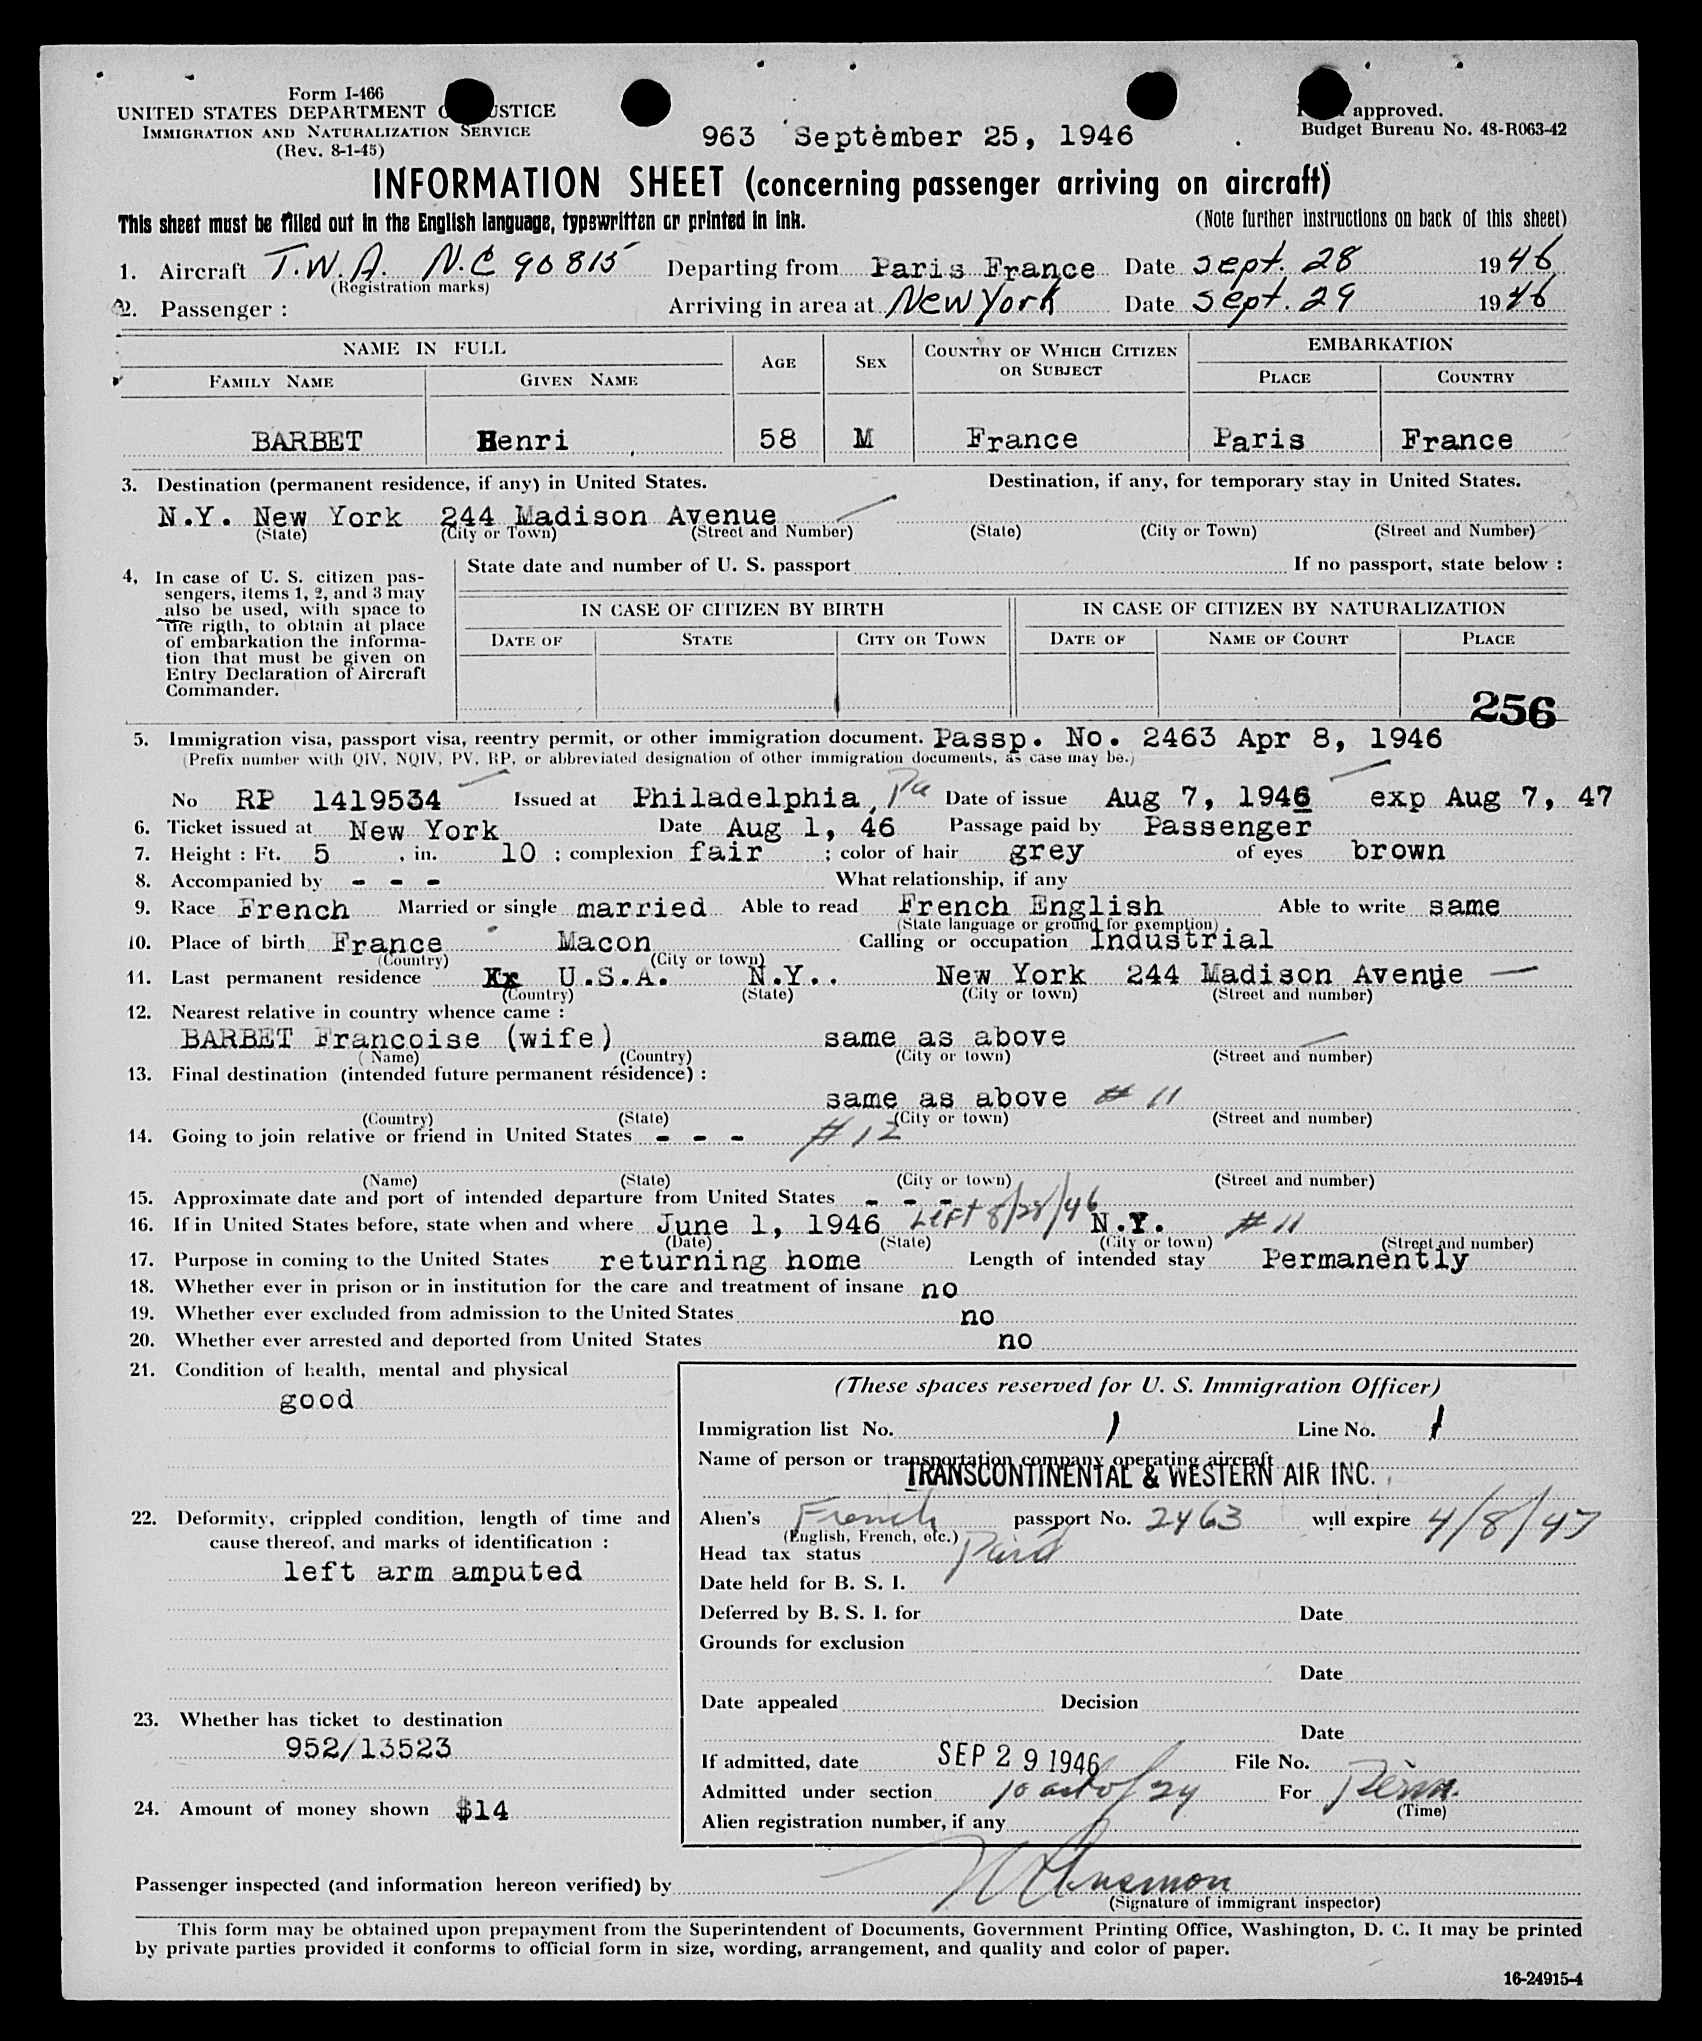 Form I-466
UNITED STATES DEPARTMENT O USTICE
IMMIGRATION AND NATURALIZATION SERVICE
(Rev. 8-1-45)
963 September 25, 1946
approved.
Budget Bureau No. 43-R063-42
INFORMATION SHEET (concerning passenger arriving on aircraft)
This sheet must be filled out in the English language, typewritten or printed in ink.
(Note further instructions on back of this sheet)
1. Aircraft T.W.A. N.C 90815 Departing from Paris France Date Sept. 28 1946
(Registration marks)
2. Passenger : Arriving in area at New York Date Sept. 29 1946
NAME IN FULL AGE SEX COUNTRY OF WHICH CITIZEN OR SUBJECT EMBARKATION
FAMILY NAME GIVEN NAME PLACE COUNTRY
BARBET Henri 58 M France Paris France
3. Destination (permanent residence, if any) in United States. Destination, if any, for temporary stay in United States.
N.Y. New York 244 Madison Avenue
(State) (City or Town) (Street and Number) (State) (City or Town) (Street and Number)
4, In case of U. S. citizen pas-
sengers, items 1, 2, and 3 may
also be used, with space to
the rigth, to obtain at place
of embarkation the informa-
tion that must be given on
Entry Declaration of Aircraft
Commander.
State date and number of U. S. passport If no passport, state below :
IN CASE OF CITIZEN BY BIRTH IN CASE OF CITIZEN BY NATURALIZATION
DATE OF STATE CITY OR TOWN DATE OF NAME OF COURT PLACE
256
5. Immigration visa, passport visa, reentry permit, or other immigration document. Passp. No. 2463 Apr 8, 1946
(Prefix number with QIV, NQIV, PV, RP, or abbreviated designation of other immigration documents, as case may be.)
No RP 1419534 Issued at Philadelphia, Pa Date of issue Aug 7, 1946 exp Aug 7, 47
6. Ticket issued at New York Date Aug 1, 46 Passage paid by Passenger
7. Height : Ft. 5 , in. 10 ; complexion fair ; color of hair grey of eyes brown
8. Accompanied by - - - What relationship, if any
9. Race French Married or single married Able to read French English Able to write same
(State language or ground for exemption)
10. Place of birth France Macon Calling or occupation Industrial
(Country) (City or town)
11. Last permanent residence Xx U.S.A. N.Y.. New York 244 Madison Avenue
(Country) (State) (City or town) (Street and number)
12. Nearest relative in country whence came :
BARBET Francoise (wife) same as above
(Name) (Country) (City or town) (Street and number)
13. Final destination (intended future permanent résidence) :
same as above # 11
(Country) (State) (City or town) (Street and number)
14. Going to join relative or friend in United States - - - # 12
(Name) (State) (City or town) (Street and number)
15. Approximate date and port of intended departure from United States - - -
16. If in United States before, state when and where June 1, 1946 Left 8/28/46 N.Y. # 11
(Date) (State) (City or town) (Street and number)
17. Purpose in coming to the United States returning home Length of intended stay Permanently
18. Whether ever in prison or in institution for the care and treatment of insane no
19. Whether ever excluded from admission to the United States no
20. Whether ever arrested and deported from United States no
21. Condition of health, mental and physical
good
22. Deformity, crippled condition, length of time and
cause thereof, and marks of identification :
left arm amputed
23. Whether has ticket to destination
952/13523
24. Amount of money shown $14
(These spaces reserved for U. S. Immigration Officer)
Immigration list No. 1 Line No. 1
Name of person or transportation company operating aircraft
TRANSCONTINENTAL & WESTERN AIR INC.
Alien's French passport No. 2463 will expire 4/8/47
(English, French, etc.)
Head tax status Paid
Date held for B. S. I.
Deferred by B. S. I. for Date
Grounds for exclusion
Date
Date appealed Decision
Date
If admitted, date SEP 29 1946 File No.
Admitted under section 10 act of 24 For Perm.
(Time)
Alien registration number, if any
Passenger inspected (and information hereon verified) by
(Signature of immigrant inspector)
This form may be obtained upon prepayment from the Superintendent of Documents, Government Printing Office, Washington, D. C. It may be printed
by private parties provided it conforms to official form in size, wording, arrangement, and quality and color of paper.
16-24915-4